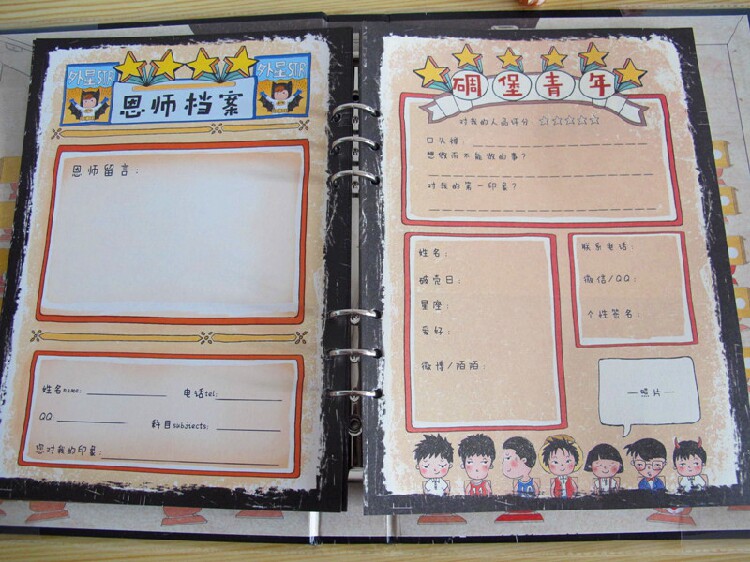 外星STR
外星STR
恩师档案
恩师留言：
姓名name：
电话tel：
QQ
科目subjects：
您对我的印象：
碉堡青年
对我的人品评分 ☆☆☆☆☆
口头禅：
想做而不能做的事？
对我的第一印象？
姓名：
破壳日：
星座：
爱好：
微博/陌陌：
联系电话：
微信/QQ：
个性签名：
照片